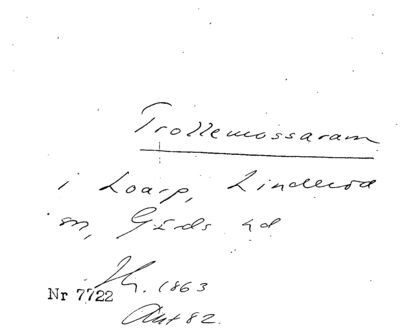 Trollemossaram
i Loarp, Linderöd
sn, Gärds hd
Nr 7722
1863
Ant 82.